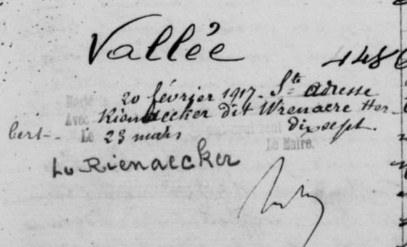 Vallée
4486
20 février 1917 - Ste adresse
Avec Rienaecker dit Wrenacre Her-
bert - Le 23 mars dix sept.
Le Maire.
Lu Rienaecker